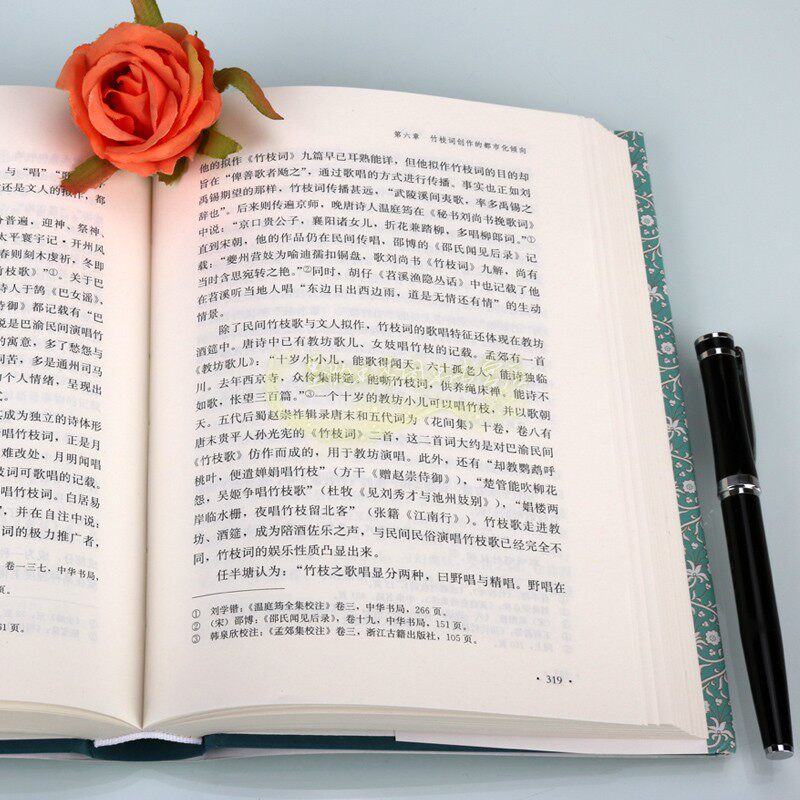 与“唱”
还是文人的拟作，都
分普遍，迎神、祭神、
太平寰宇记·开州风
春则刻木虔祈，冬即
竹枝歌》”①。关于巴
诗人于鹄《巴女谣》、
侍御》都记载有“巴
说是巴渝民间演唱竹
的寓意，多了愁怨与
同苦，多是通州司马
个人情绪，呈现出
其成为独立的诗体形
唱竹枝词，正是月
难改处，月明闻唱
竹枝词可歌唱的记载。
唱竹枝词。白居易
”，并在自注中说：
词的极力推广者，
卷一三七，中华书局，
61页。
第六章 竹枝词创作的都市化倾向
他的拟作《竹枝词》九篇早已耳熟能详，但他拟作竹枝词的目的却
旨在“俾善歌者飏之”，通过歌唱的方式进行传播。事实也正如刘
禹锡期望的那样，竹枝词传播甚远，“武陵溪间夷歌，率多禹锡之
辞也”。后来则传遍京师，晚唐诗人温庭筠在《秘书刘尚书挽歌词》
中说：“京口贵公子，襄阳诸女儿，折花兼踏柳，多唱柳郎词。”①
直到宋朝，他的作品仍在民间传唱，邵博的《邵氏闻见后录》记
载：“夔州营妓为喻迪孺扣铜盘，歌刘尚书《竹枝词》九解，尚有
当时含思宛转之艳。”②同时，胡仔《苕溪渔隐丛话》中也记载了他
在苕溪听当地人唱“东边日出西边雨，道是无情还有情”的生动
情景。
除了民间竹枝歌与文人拟作，竹枝词的歌唱特征还体现在教坊
酒筵中。唐诗中已有教坊歌儿、女妓唱竹枝的记载。孟郊有一首
《教坊歌儿》：“十岁小小儿，能歌得闻天。六十孤老人，能诗独临
川。去年西京寺，众伶集讲筵。他嘶竹枝词，供养绳床禅。能诗不
如歌，怅望三百篇。”③一个十岁的教坊小儿可以唱竹枝，并以歌朝
天。五代后蜀赵崇祚辑录唐末和五代词为《花间集》十卷，卷八有
唐末贵平人孙光宪的《竹枝词》二首，这二首词大约是对巴渝民间
《竹枝歌》仿作而成的，用于教坊演唱。此外，还有“却教鹦鹉呼
桃叶，便遣婵娟唱竹枝”（方干《赠赵崇侍御》），“楚管能吹柳花
怨，吴姬争唱竹枝歌”（杜牧《见刘秀才与池州妓别》），“娼楼两
岸临水栅，夜唱竹枝留北客”（张籍《江南行》）。竹枝歌走进教
坊、酒筵，成为陪酒佐乐之声，与民间民俗演唱竹枝歌已经完全不
同，竹枝词的娱乐性质凸显出来。
任半塘认为：“竹枝之歌唱显分两种，曰野唱与精唱。野唱在
① 刘学锴：《温庭筠全集校注》卷三，中华书局，266页。
② （宋）邵博：《邵氏闻见后录》，卷十九，中华书局，151页。
③ 韩泉欣校注：《孟郊集校注》卷三，浙江古籍出版社，105页。
·319·